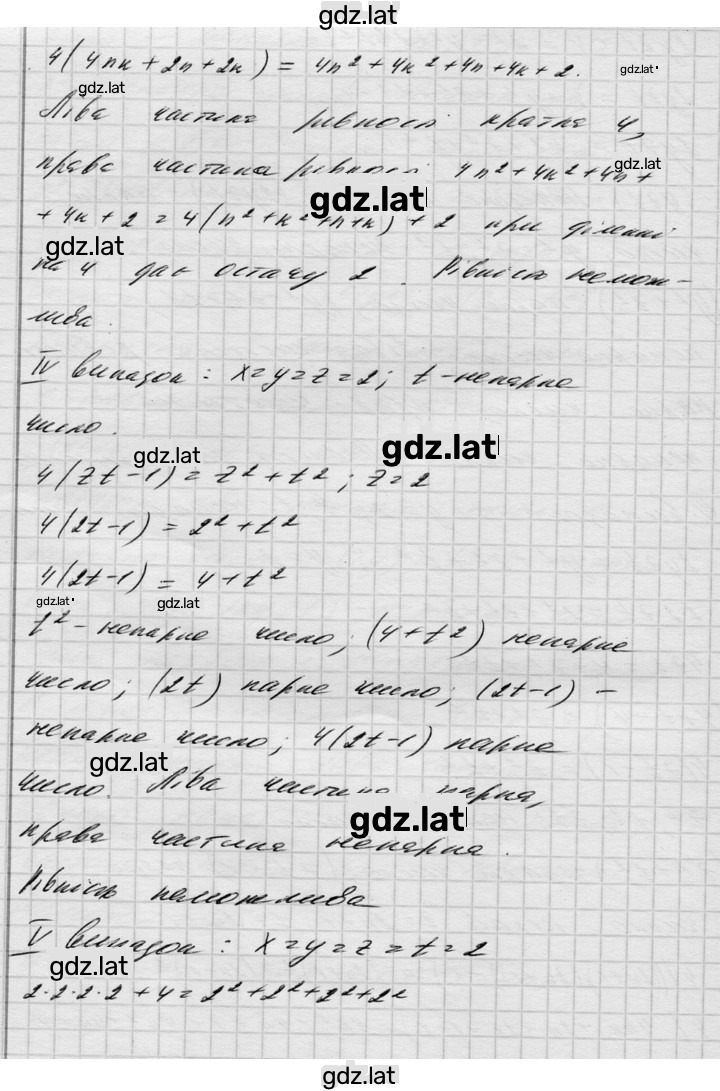 gdz.lat
4(4nk + 2n + 2k) = 4n² + 4k² + 4n + 4k + 2.
gdz.lat
gdz.lat
Ліва частина рівності кратна 4,
права частина рівності 4n² + 4k² + 4n +
gdz.lat
+ 4k + 2 = 4(n² + k² + n + k) + 2 при діленні
gdz.lat
на 4 дає остачу 2. Рівність немож-
лива.
IV випадок: x = y = z = 2; t - непарне
число.
gdz.lat
gdz.lat
4(zt - 1) = z² + t²; z = 2
4(2t - 1) = 2² + t²
4(2t - 1) = 4 + t²
gdz.lat
gdz.lat
t² - непарне число; (4 + t²) непарне
число; (2t) парне число; (2t - 1) -
непарне число; 4(2t - 1) парне
gdz.lat
число. Ліва частина парна,
gdz.lat
права частина непарна.
Рівність неможлива
V випадок: x = y = z = t = 2
gdz.lat
2·2·2·2 + 4 = 2² + 2² + 2² + 2²
gdz.lat